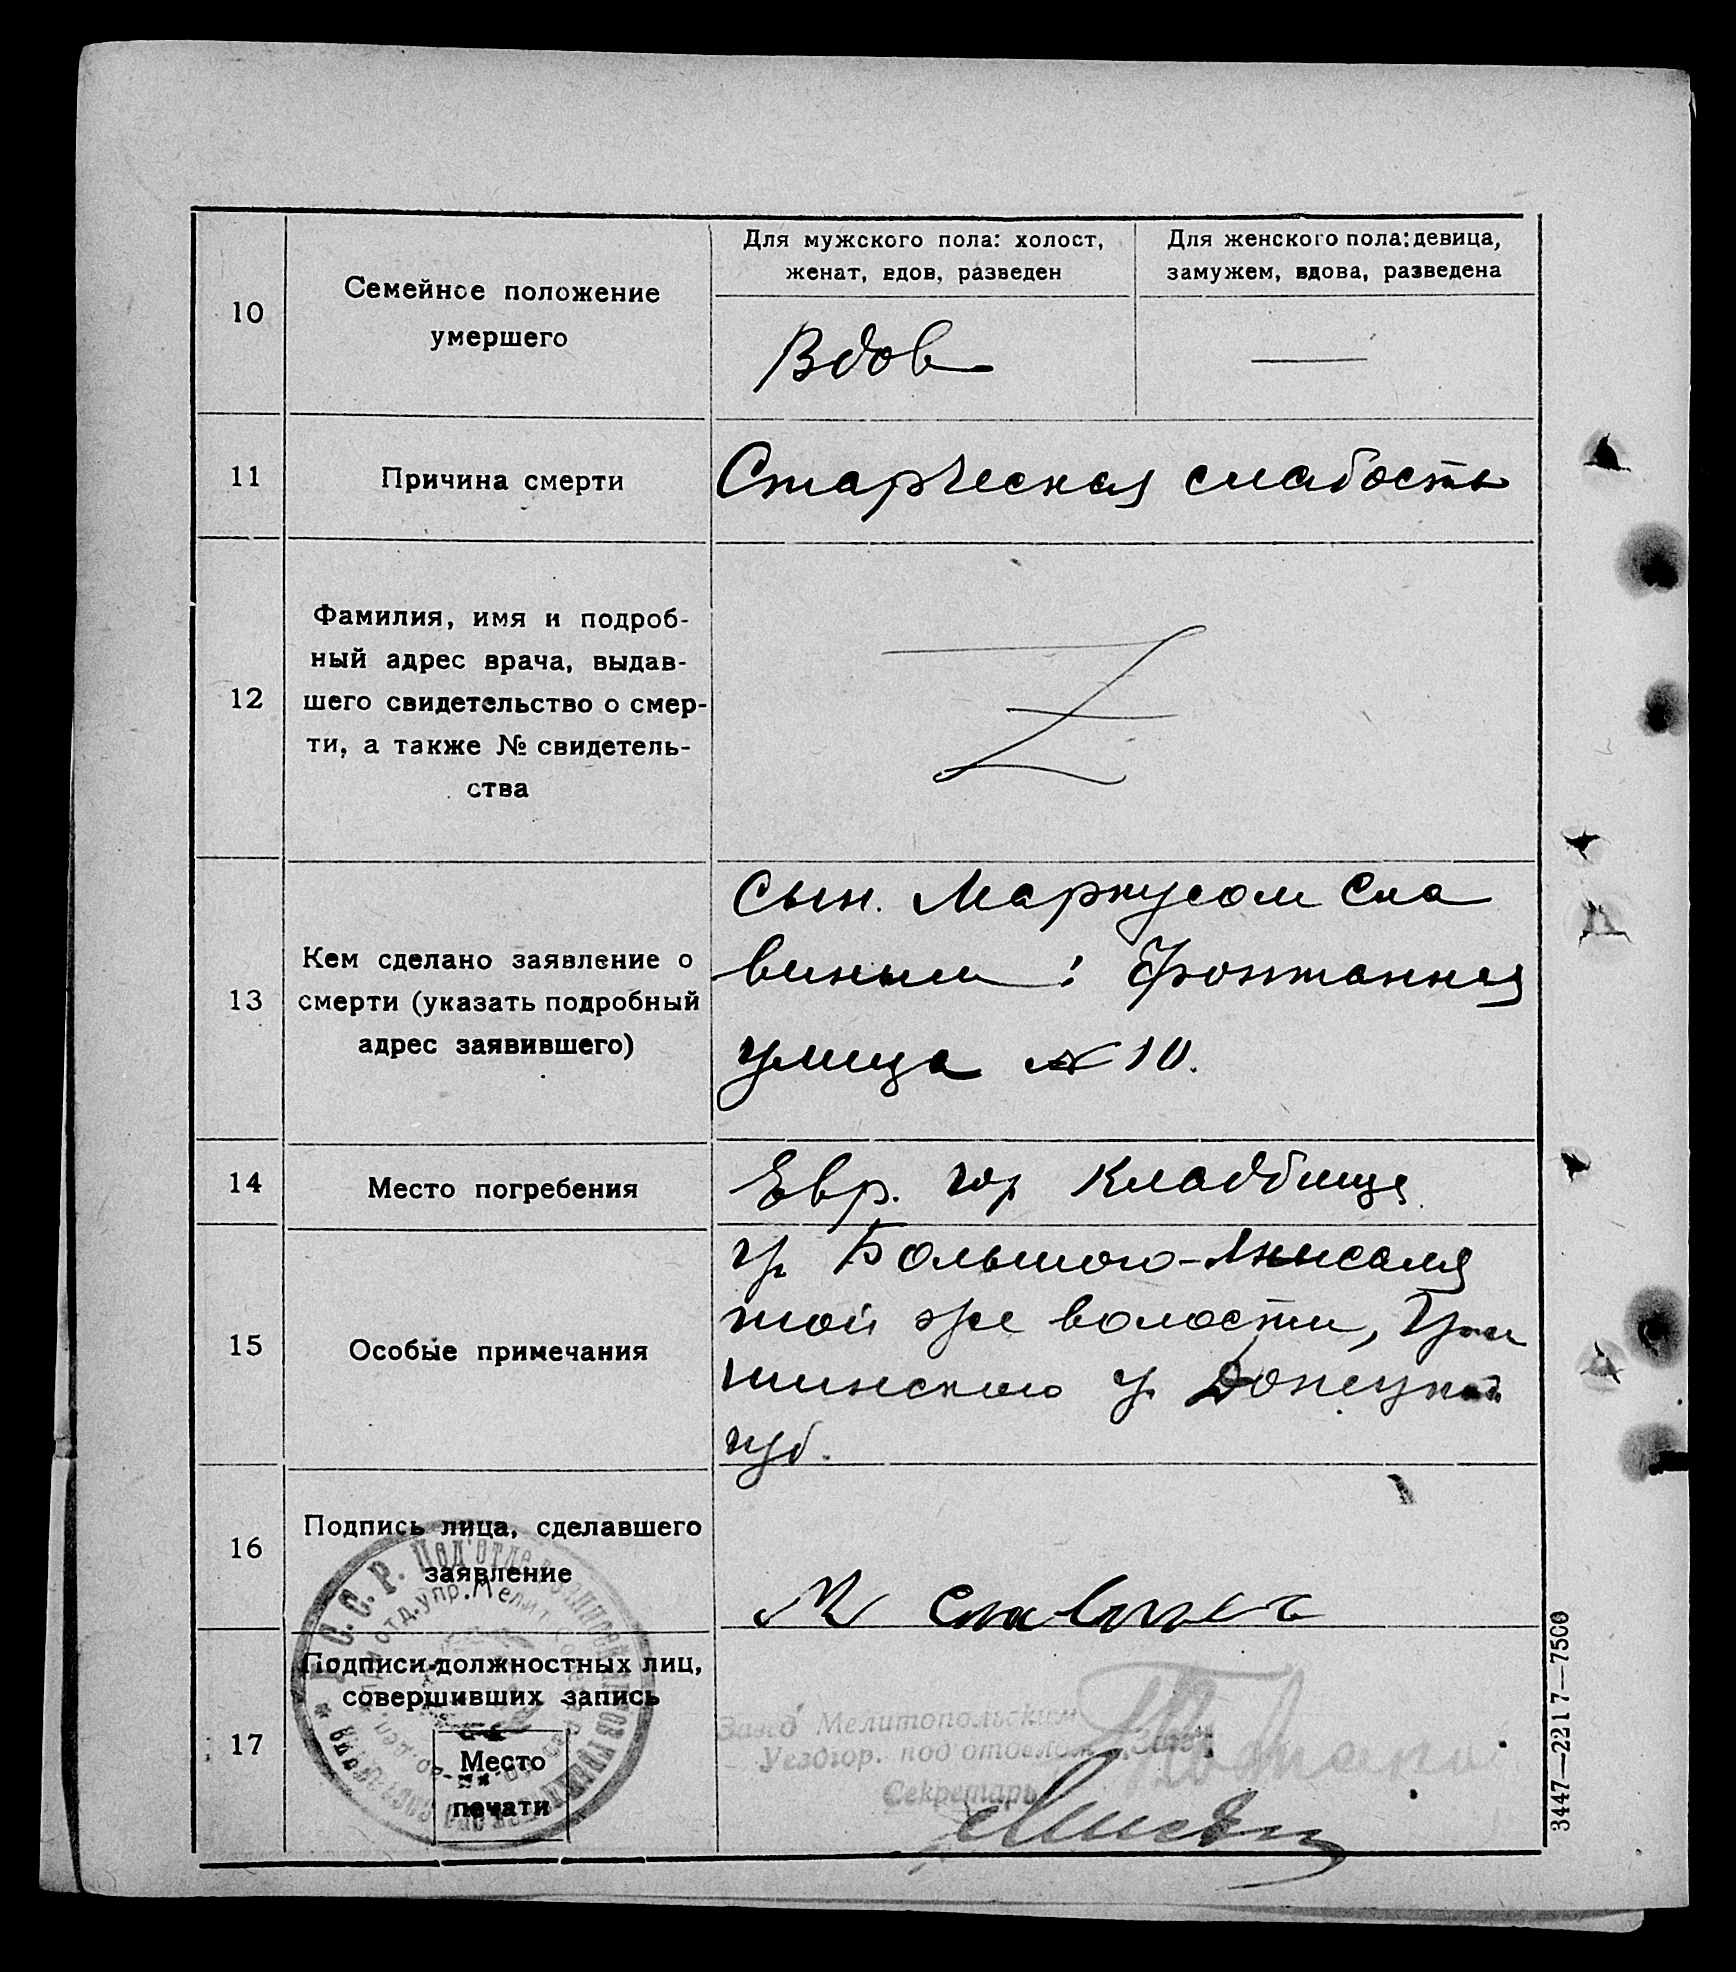 10
Семейное положение
умершего
Для мужского пола: холост,
женат, вдов, разведен
Для женского пола: девица,
замужем, вдова, разведена
Вдов
11
Причина смерти
Старческая слабость
12
Фамилия, имя и подроб-
ный адрес врача, выдав-
шего свидетельство о смер-
ти, а также № свидетель-
ства
13
Кем сделано заявление о
смерти (указать подробный
адрес заявившего)
Сын. Маркусом Сла
виным: Фонтанная
улица № 10.
14
Место погребения
Евр. гор кладбище
15
Особые примечания
гр. Большого-
той же волости, Гри
шинского у. Донецкой
губ.
16
Подпись лица, сделавшего
заявление
М Славинъ
17
Подписи должностных лиц,
совершивших запись
Место
печати
Завед Мелитопольским
Уездгор. подотделом
Секретарь
3447—2217—7500